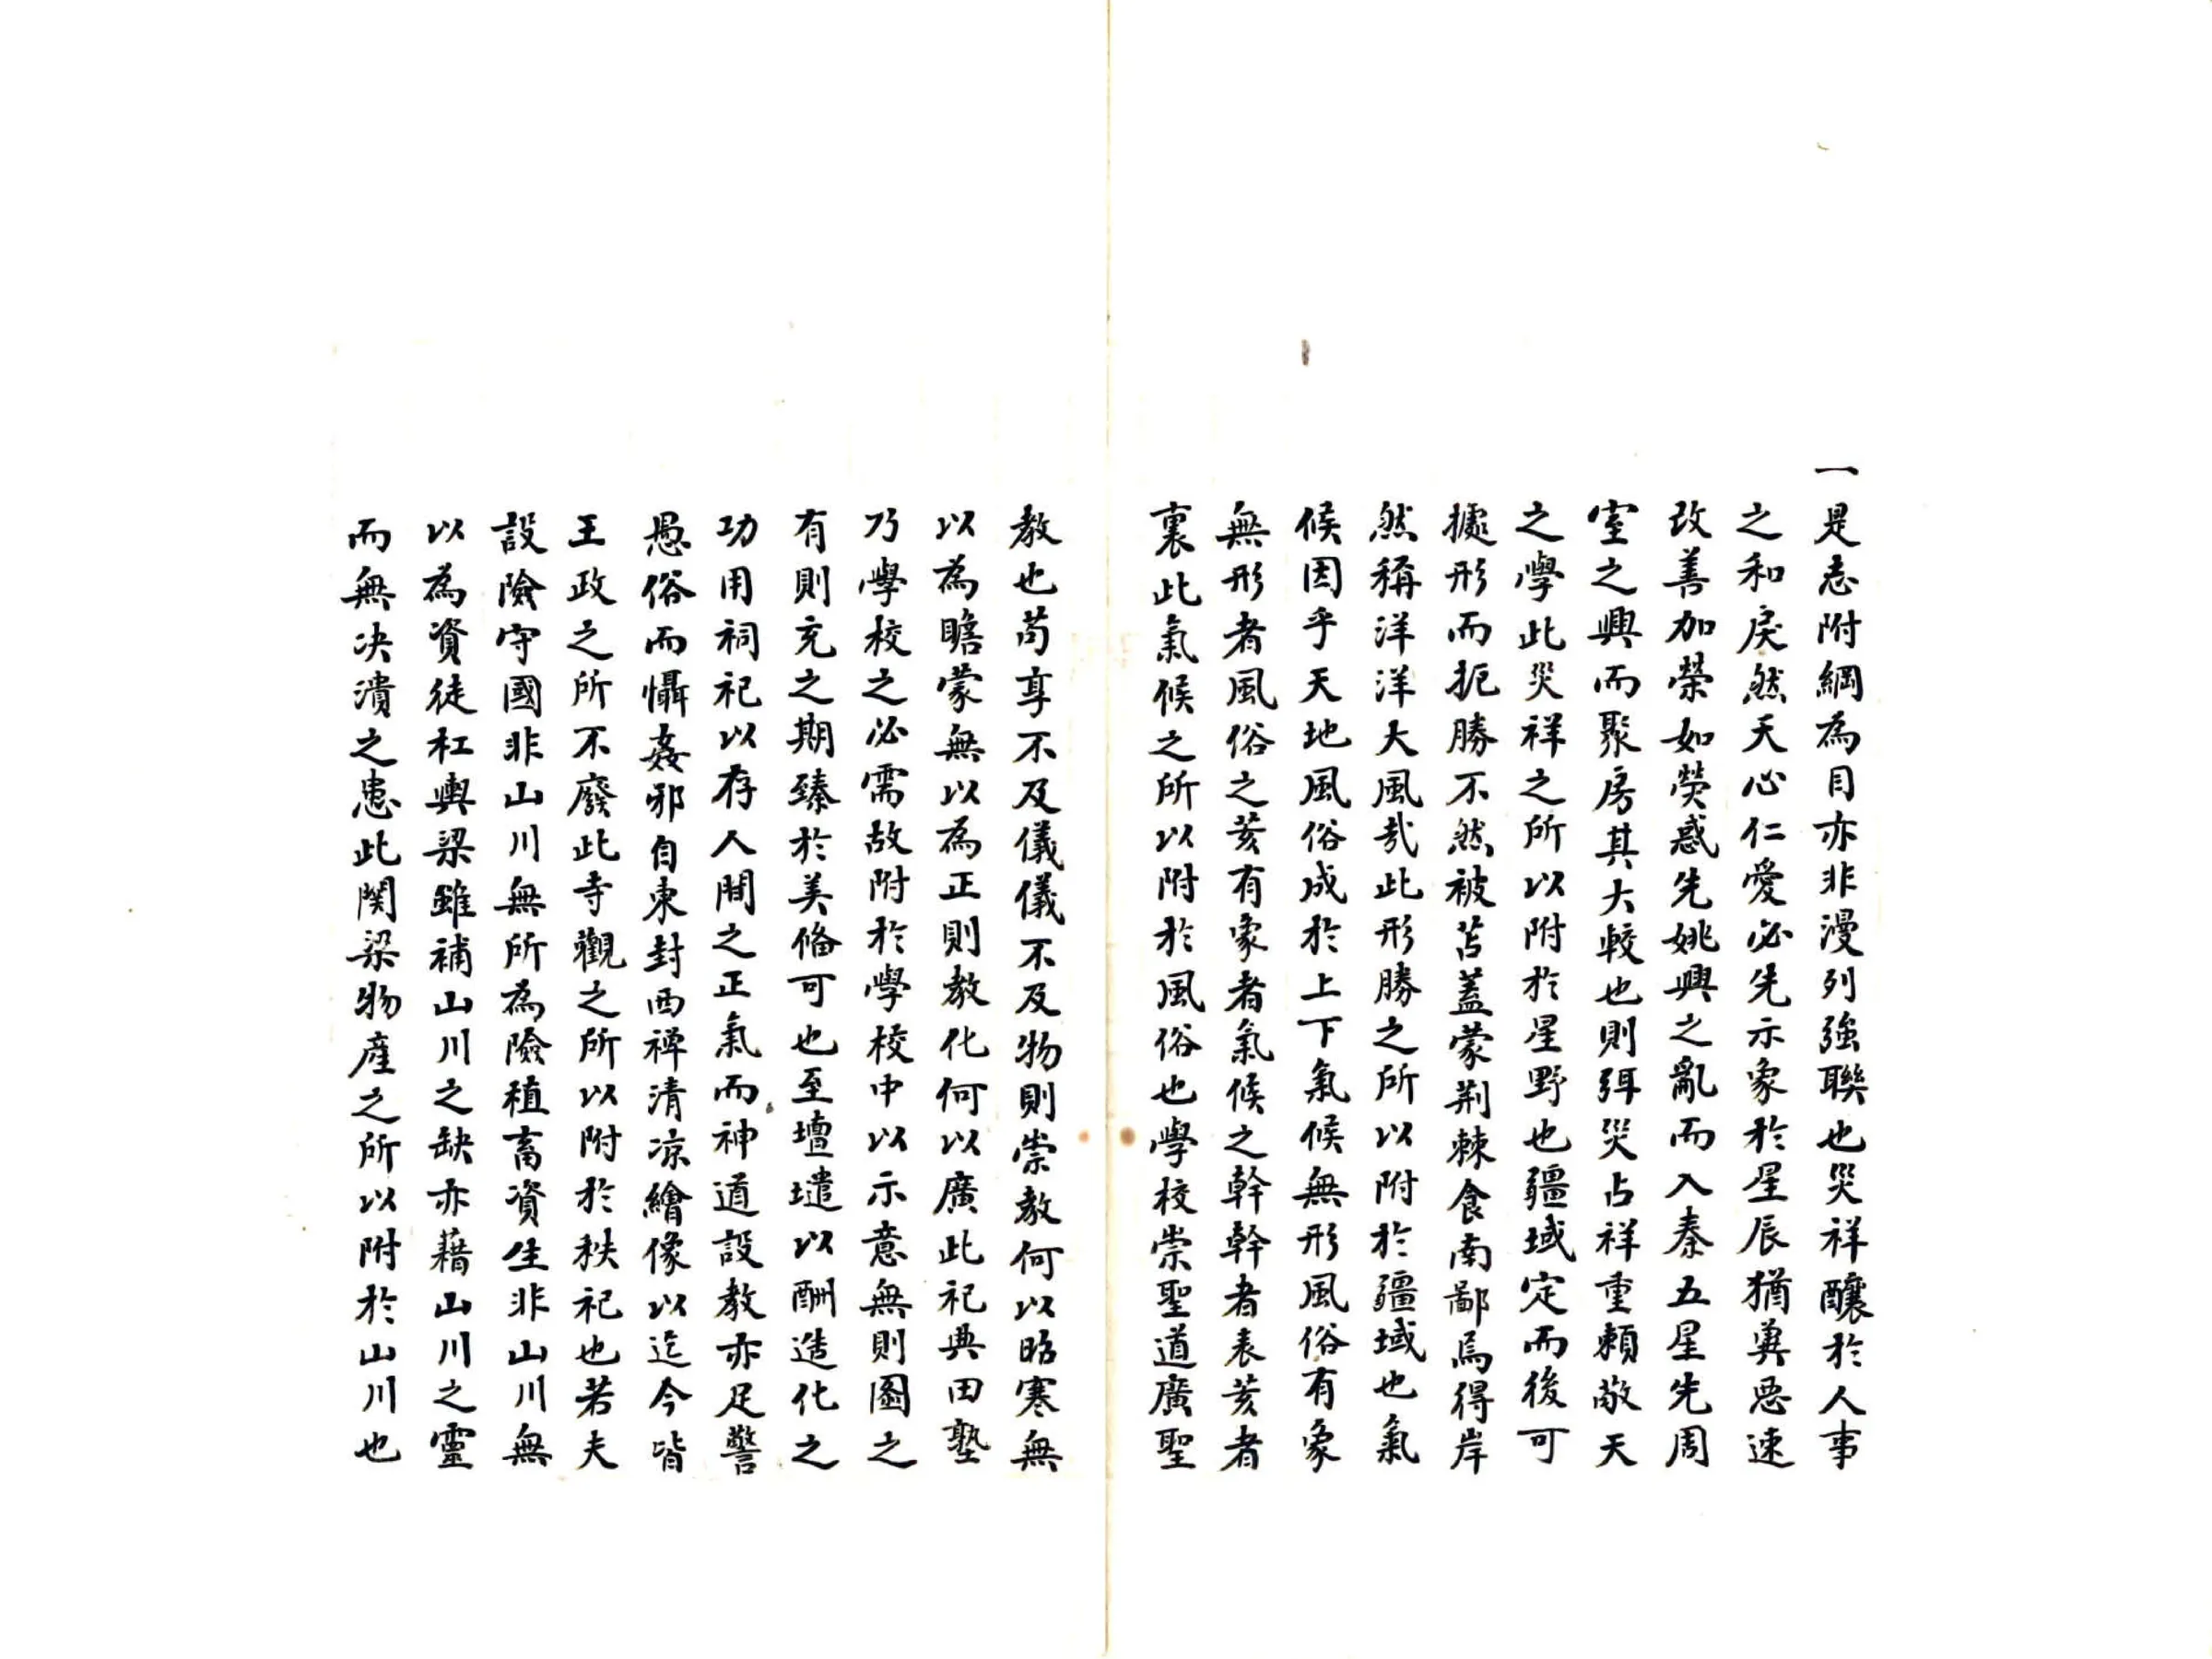 一是志附綱為目亦非漫列強聯也災祥釀於人事
之和戾然天心仁愛必先示象於星辰猶兾惡速
改善加榮如熒惑先姚興之亂而入秦五星先周
室之興而聚房其大較也則弭災占祥重賴敬天
之學此災祥之所以附於星野也疆域定而後可
據形而扼勝不然被苫蓋蒙荆棘食南鄙焉得岸
然稱洋洋大風㢤此形勝之所以附於疆域也氣
候因乎天地風俗成於上下氣候無形風俗有象
無形者風俗之荄有象者氣候之幹幹者表荄者
裏此氣候之所以附於風俗也學校崇聖道廣聖
教也苟享不及儀儀不及物則崇教何以昭寒無
以為瞻蒙無以為正則教化何以廣此祀典田塾
乃學校之必需故附於學校中以示意無則圖之
有則充之期臻於美俻可也至壇壝以酬造化之
功用祠祀以存人間之正氣而神道設教亦足警
愚俗而懾姦邪自東封西禪清凉繪像以迄今皆
王政之所不廢此寺觀之所以附於秩祀也若夫
設險守國非山川無所為險植畜資生非山川無
以為資徒杠輿梁雖補山川之缺亦藉山川之靈
而無决潰之患此関梁物產之所以附於山川也